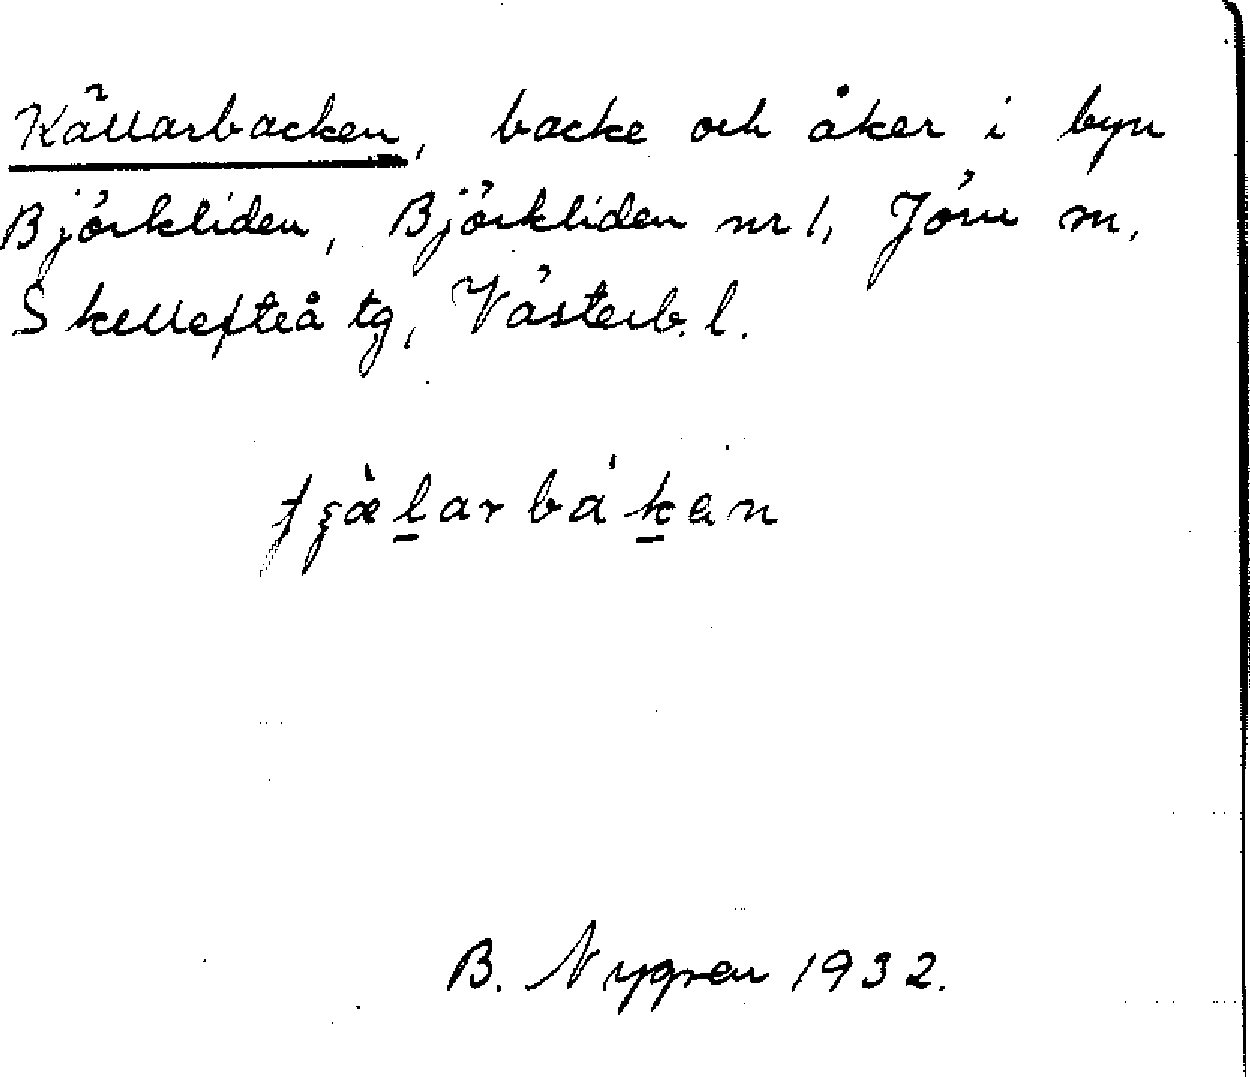 Källarbacken, backe och åker i byn
Björkliden, Björkliden nr 1, Jörn sn,
Skellefteå tg, Västerb. l.
B. Nygren 1932.